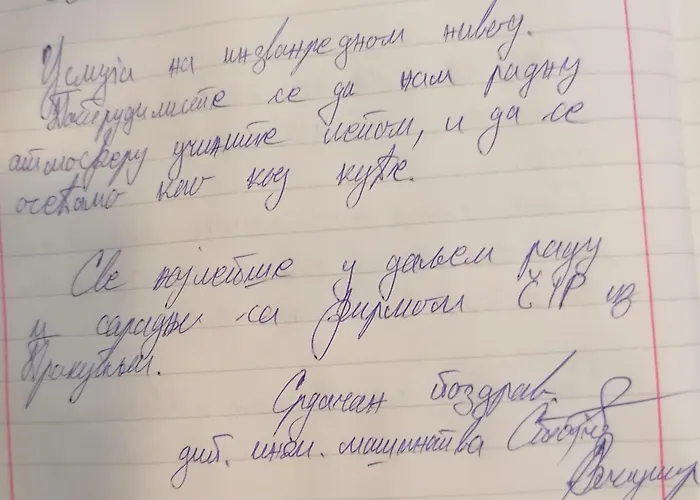 Услуга на инзванредном нивоу.
Потрудилисте се да нам радну
атмосферу учините лепом, и да се
осећамо као код куће.
Све најлепше у даљем раду
и сарадњи са фирмом ČIP из
Прокупља.
Срдачан поздрав
дип. инж. машинства